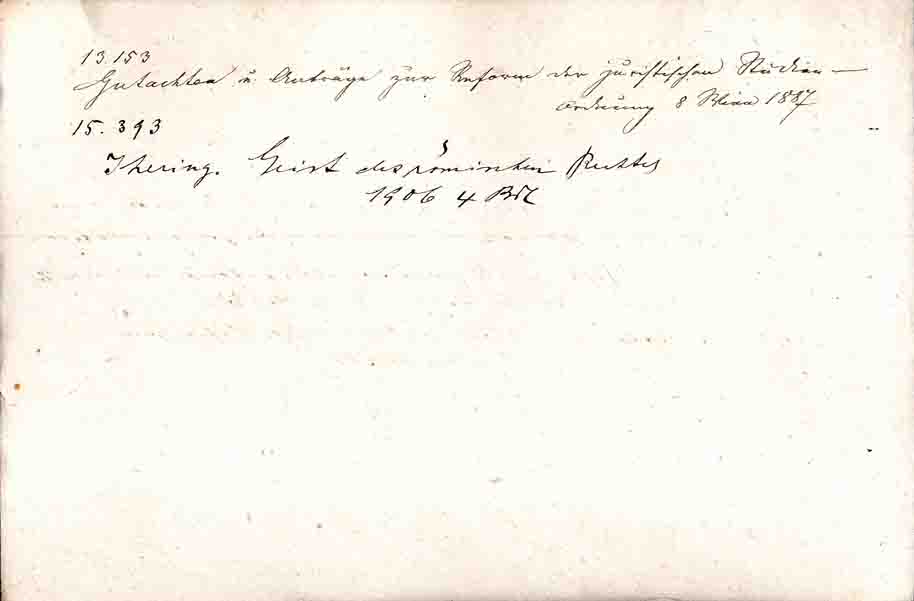 13.153
Gutachten u. Anträge zur Reform der juristischen Studien-
ordnung 8 Wien 1887
15.393
Ihering. Geist des römischen Rechtes
1906 4 Bde